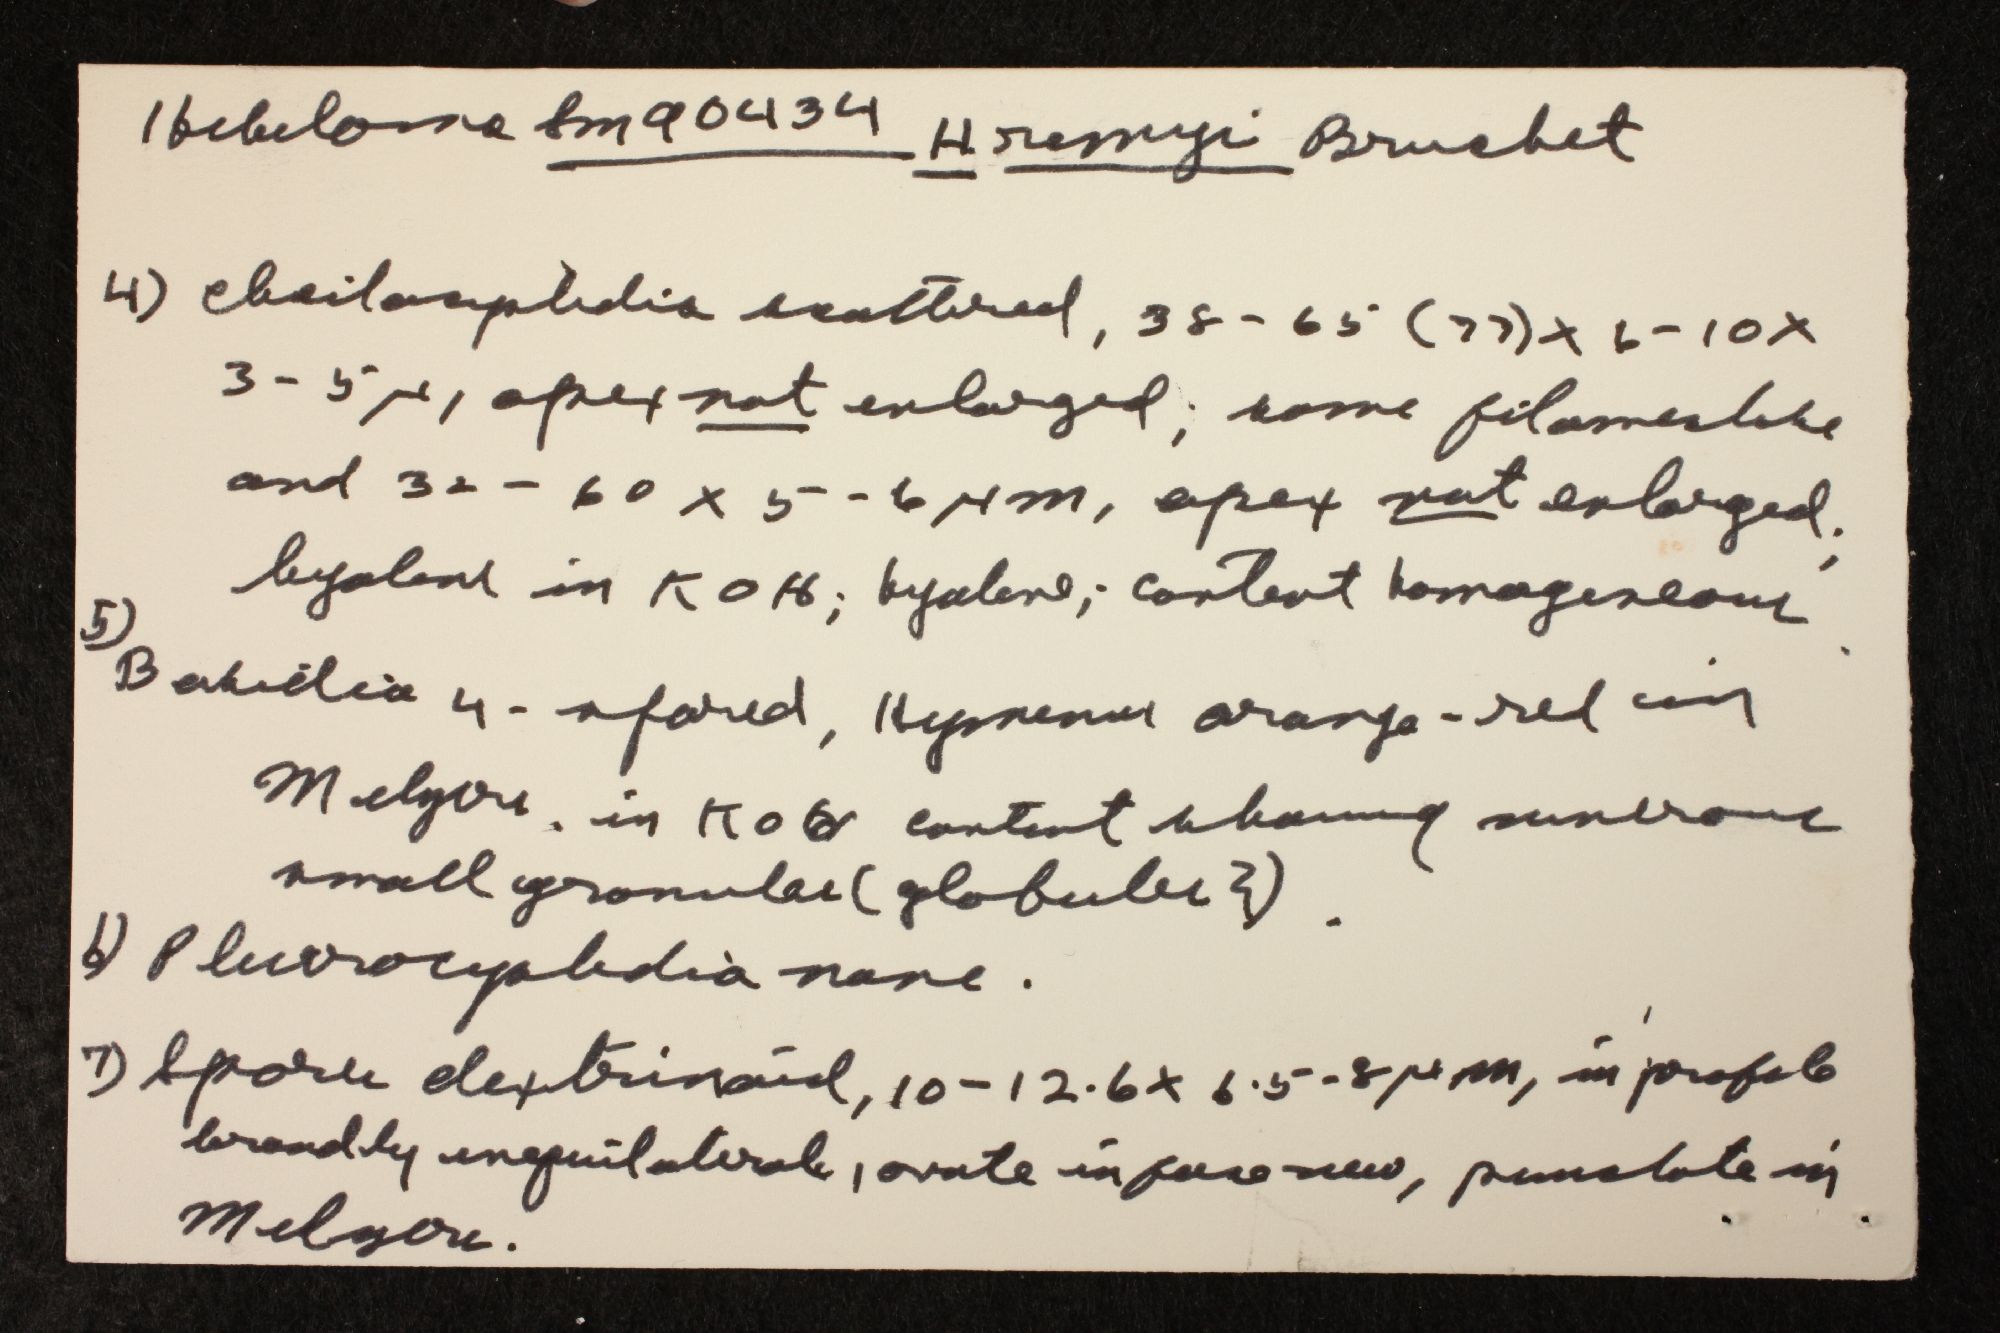 Hebeloma Sm90434 H remyi Bruchet
4) cheilocystidia scattered, 38-65 (77) x 6-10 x
3-5 μ, apex not enlarged; some filamentose
and 32-60 x 5-6 μm, apex not enlarged;
hyaline in KOH; hyaline; content homogeneous.
5)
Basidia 4-spored, Hymenium orange-red in
Melzers. in KOH content showing numerous
small granules (globules?).
6) Pleurocystidia none.
7) Spores dextrinoid, 10-12.6 x 6.5-8 μm, in profile
broadly inequilateral, ovate in face view, punctate in
Melzers.